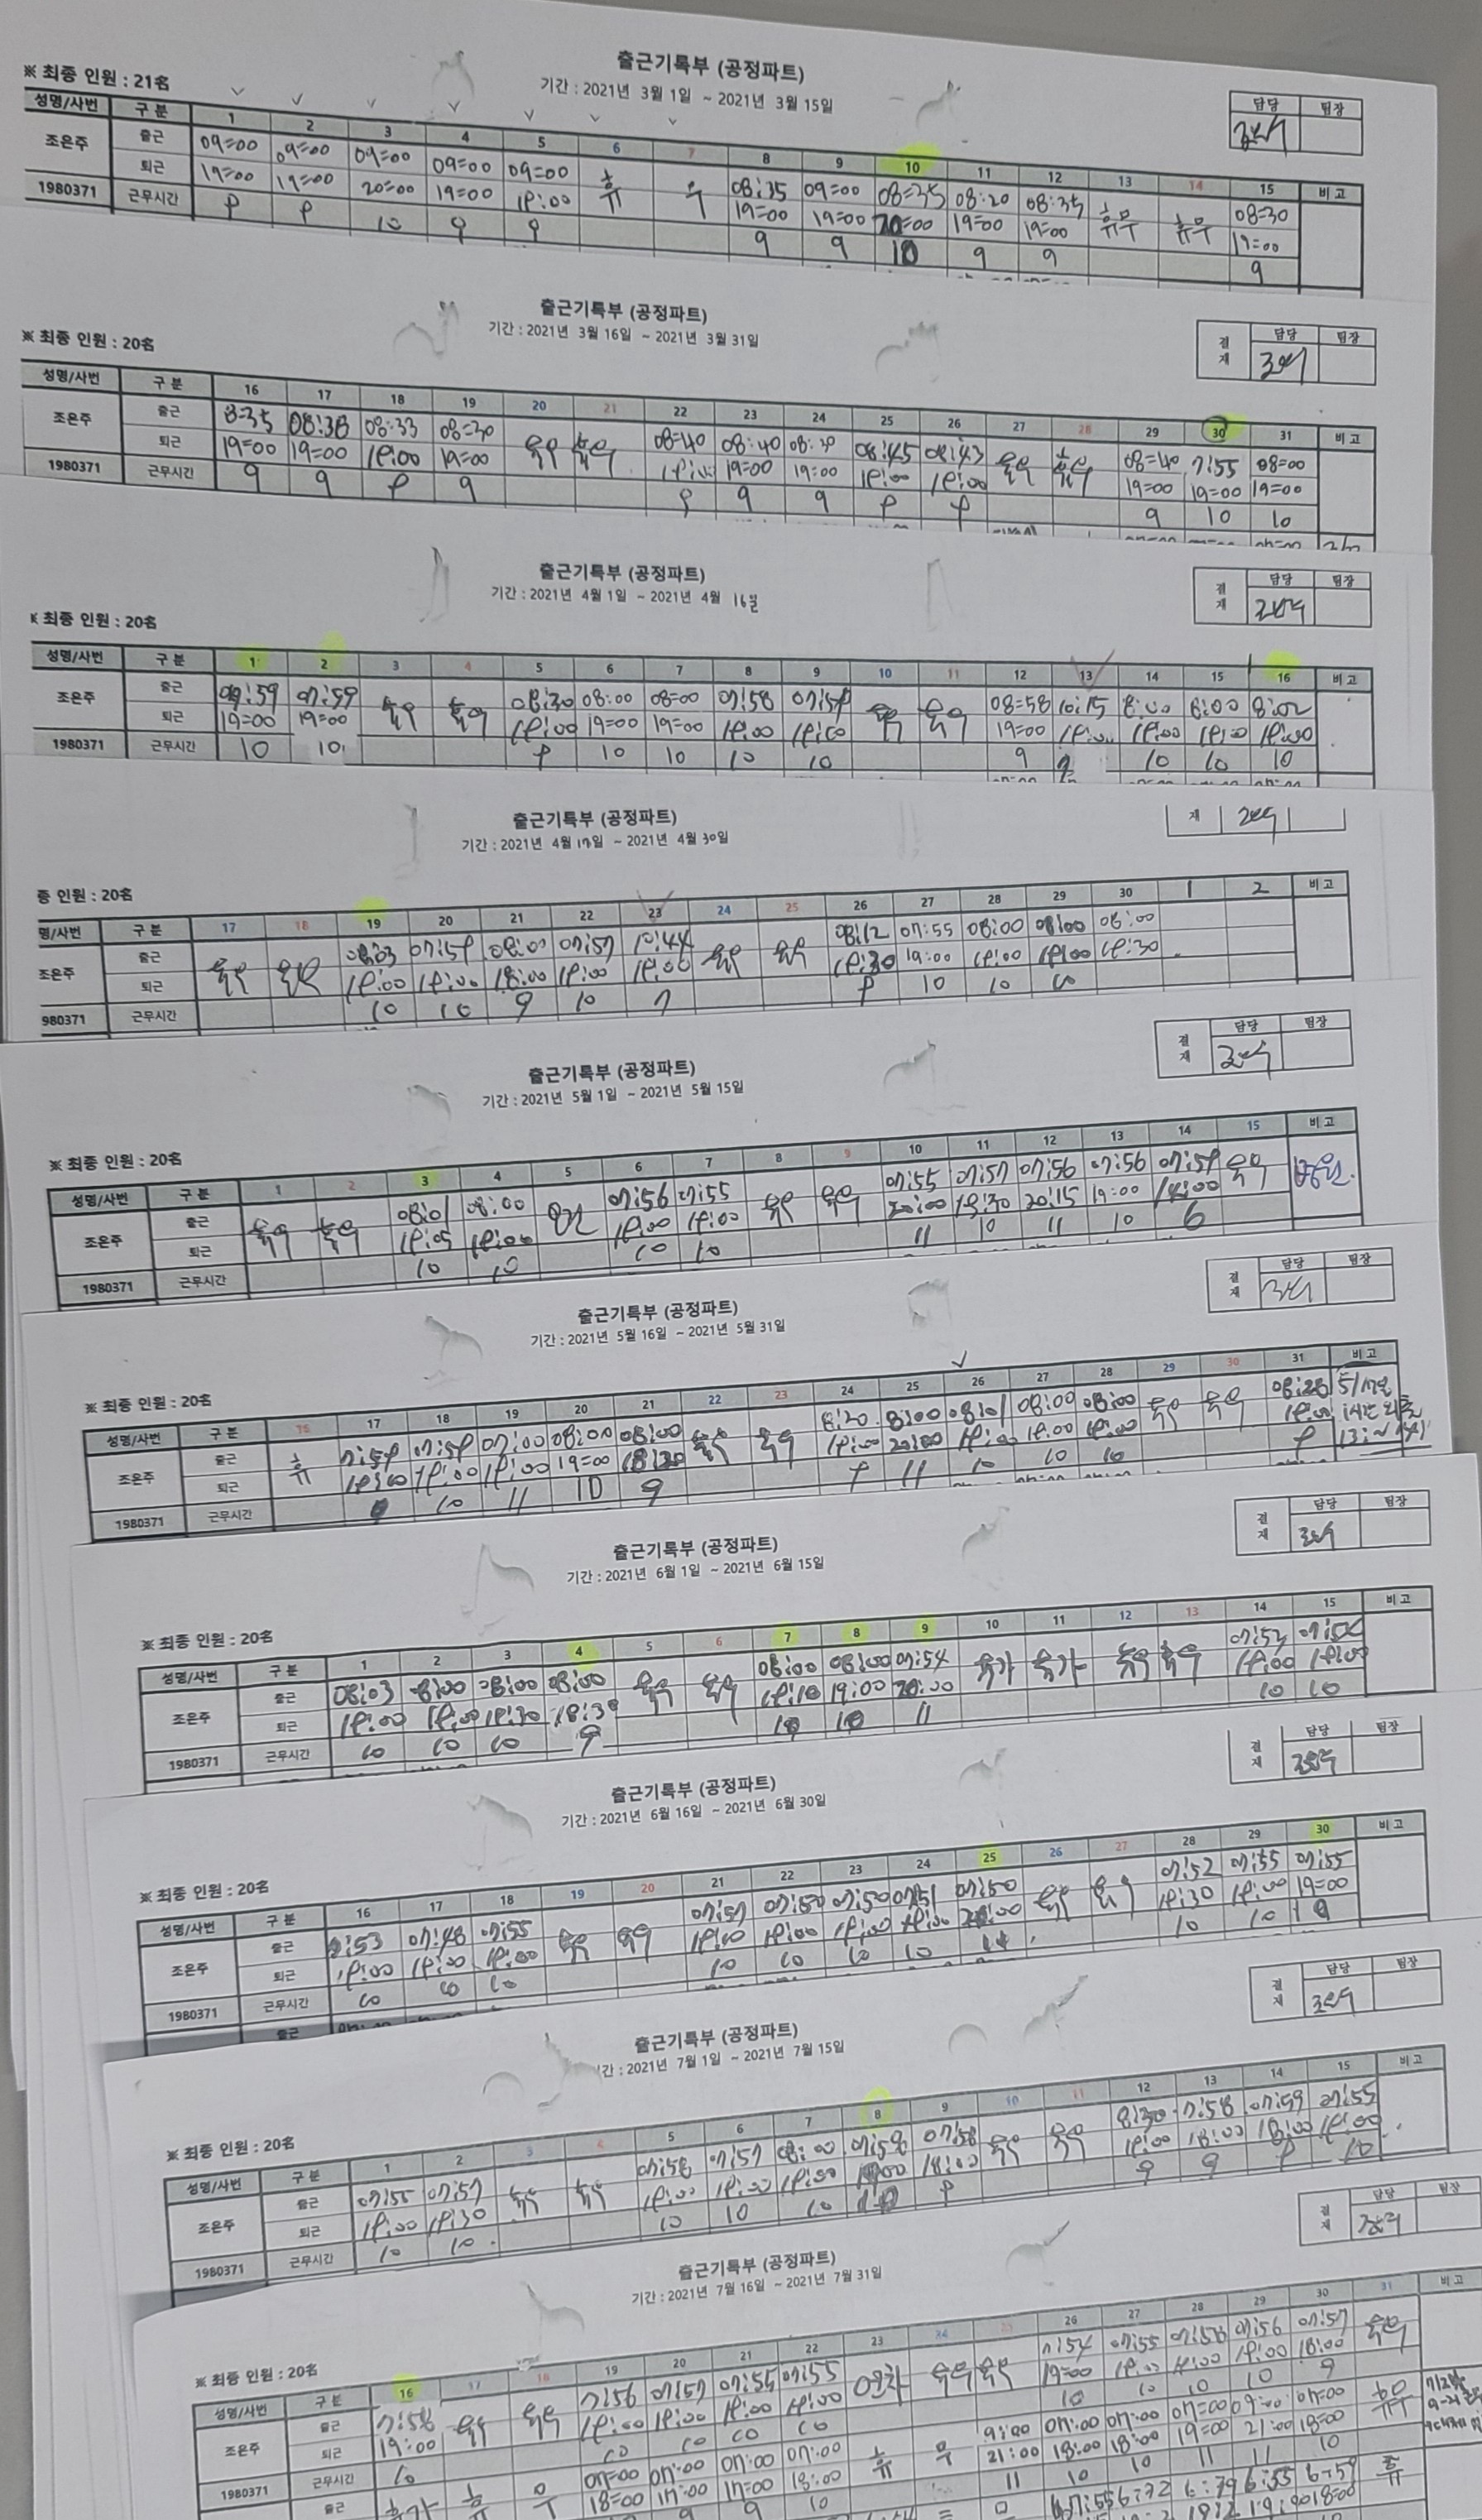 출근기록부 (공정파트)
기간 : 2021년 3월 1일 ~ 2021년 3월 15일
※ 최종 인원 : 21名
담당 팀장
성명/사번 구 분 1 2 3 4 5 6 7 8 9 10 11 12 13 14 15 비 고
조은주 출근 09=00 09=00 09=00 09=00 09=00 휴 무 08:35 09=00 08=35 08:20 08:35 휴무 휴무 08=30
퇴근 19=00 19=00 20=00 19=00 19:00 19=00 19=00 20=00 19=00 19=00 19=00
1980371 근무시간 9 9 10 9 9 9 9 10 9 9 9
출근기록부 (공정파트)
기간 : 2021년 3월 16일 ~ 2021년 3월 31일
※ 최종 인원 : 20名
결재 담당 팀장
성명/사번 구 분 16 17 18 19 20 21 22 23 24 25 26 27 28 29 30 31 비 고
조은주 출근 8=35 08:38 08:33 08=30 휴무 휴무 08=40 08:40 08:45 08:43 휴무 휴무 08=40 7:55 08=00
퇴근 19=00 19=00 19:00 19=00 19:00 19=00 19=00 19:00 19:00 19=00 19=00 19=00
1980371 근무시간 9 9 9 9 9 9 9 9 9 9 10 10
출근기록부 (공정파트)
기간 : 2021년 4월 1일 ~ 2021년 4월 16일
최종 인원 : 20名
결재 담당 팀장
성명/사번 구 분 1 2 3 4 5 6 7 8 9 10 11 12 13 14 15 16 비 고
조은주 출근 07:59 07:59 휴무 휴무 08:30 08:00 08=00 07:58 07:59 휴무 휴무 08=58 10:15 8:00 8:00 8:02
퇴근 19=00 19=00 19:00 19=00 19=00 19:00 19:00 19=00 19:00 19:00 19:00
1980371 근무시간 10 10 9 10 10 10 10 9 10 10 10
출근기록부 (공정파트)
기간 : 2021년 4월 17일 ~ 2021년 4월 30일
종 인원 : 20名
재
명/사번 구 분 17 18 19 20 21 22 23 24 25 26 27 28 29 30 1 2 비 고
조은주 출근 휴무 휴무 08:03 07:59 08:00 07:57 10:44 휴무 휴무 08:12 07:55 08:00 08:00 08:00
퇴근 19:00 19:00 18:00 19:00 19:00 19:30 19:00 19:00 19:00 19:30
980371 근무시간 10 10 9 10 7 9 10 10 10
출근기록부 (공정파트)
기간 : 2021년 5월 1일 ~ 2021년 5월 15일
※ 최종 인원 : 20名
결재 담당 팀장
성명/사번 구 분 1 2 3 4 5 6 7 8 9 10 11 12 13 14 15 비 고
조은주 출근 휴무 휴무 08:01 08:00 07:56 07:55 휴무 휴무 07:55 07:57 07:56 07:56 07:59 휴무 병원.
퇴근 19:05 19:00 19:00 19:00 20:00 19:30 20:15 19:00 14:00
1980371 근무시간 10 10 10 10 11 10 11 10 6
출근기록부 (공정파트)
기간 : 2021년 5월 16일 ~ 2021년 5월 31일
※ 최종 인원 : 20名
결재 담당 팀장
성명/사번 구 분 17 18 19 20 21 22 23 24 25 26 27 28 29 30 31 비 고
조은주 출근 휴 7:59 07:59 07:00 08:00 08:00 휴무 휴무 8:20 8:00 08:01 08:00 08:00 휴무 휴무 08:28
퇴근 19:00 19:00 19=00 18:30 19:00 20:00 19:00 19:00 19:00 19:00 1시간 외출
1980371 근무시간 10 11 10 9 9 11 10 10 10 9
출근기록부 (공정파트)
기간 : 2021년 6월 1일 ~ 2021년 6월 15일
※ 최종 인원 : 20名
결재 담당 팀장
성명/사번 구 분 1 2 3 4 5 6 7 8 9 10 11 12 13 14 15 비 고
조은주 출근 08:03 08:00 08:00 08:00 휴무 휴무 08:00 08:00 07:54 휴가 휴가 휴무 휴무 07:53
퇴근 19:00 19:00 19:30 18:30 19:10 19:00 20:00 19:00 19:00
1980371 근무시간 10 10 10 9 10 10 11 10 10
출근기록부 (공정파트)
기간 : 2021년 6월 16일 ~ 2021년 6월 30일
※ 최종 인원 : 20名
결재 담당 팀장
성명/사번 구 분 16 17 18 19 20 21 22 23 24 25 26 27 28 29 30 비 고
조은주 출근 7:53 07:48 07:55 휴무 휴무 07:57 07:50 07:50 07:51 07:50 휴무 휴무 07:52 07:55 07:55
퇴근 19:00 19:00 19:00 19:00 19:00 19:00 19:00 19:30 19:00 19=00
1980371 근무시간 10 10 10 10 10 10 10 10 10 10
출근
출근기록부 (공정파트)
간 : 2021년 7월 1일 ~ 2021년 7월 15일
※ 최종 인원 : 20名
결재 담당 팀장
성명/사번 구 분 1 2 3 4 5 6 7 8 9 10 11 12 13 14 15 비 고
조은주 출근 07:55 07:57 휴무 휴무 07:58 07:57 08:00 07:58 07:58 휴무 휴무 8:30 7:58 07:59 07:55
퇴근 19:00 19:30 19:00 19:00 19:00 18:00 19:00 18:00 18:00 19:00
1980371 근무시간 10 10 10 10 10 9 9 9 9 10
출근기록부 (공정파트)
기간 : 2021년 7월 16일 ~ 2021년 7월 31일
※ 최종 인원 : 20名
결재 담당 팀장
성명/사번 구 분 16 17 18 19 20 21 22 23 24 25 26 27 28 29 30 31 비 고
조은주 출근 7:58 휴무 휴무 7:56 07:57 07:55 07:55 연차 휴무 휴무 7:54 07:55 07:58 07:56 07:57 휴무
퇴근 19:00 19:00 19:00 19:00 19:00 19=00 19:00 19:00 19:00 18:00
1980371 근무시간 10 10 10 10 10 10 10 10 10 9
출근 휴가 휴 무 07=00 07:00 07:00 07:00 휴 무 9:00 07:00 07:00 07=00 09:00 07=00 휴무
18=00 17:00 17=00 18:00 21:00 18:00 18:00 19=00 21:00 18=00
9 9 10 11 10 10 11 11 10